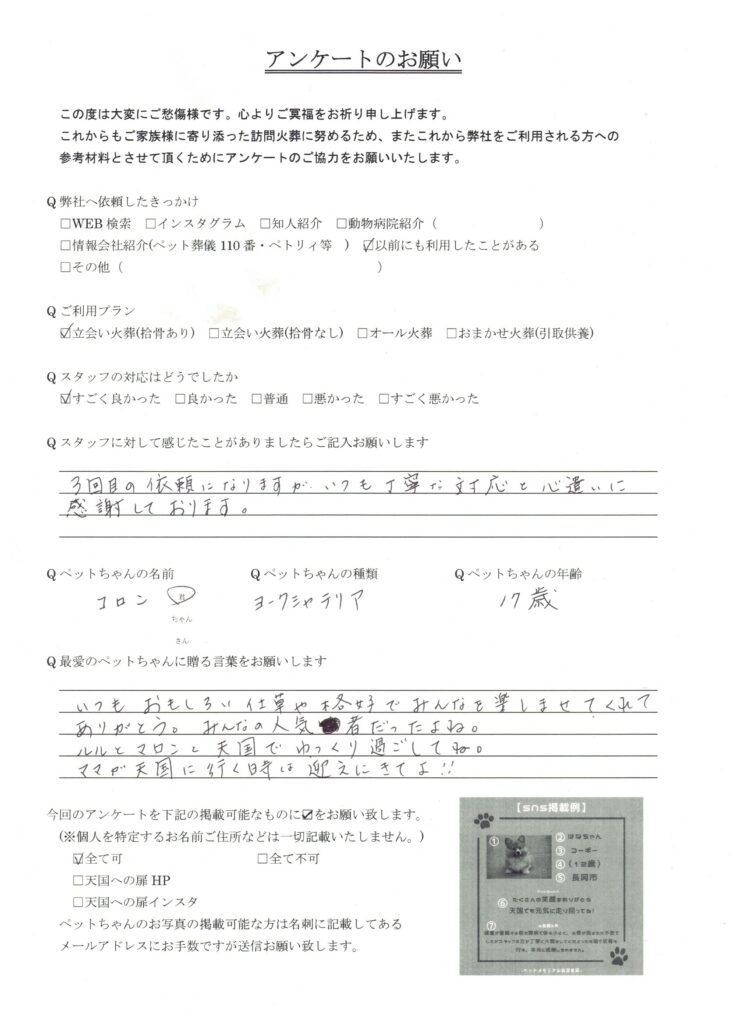 アンケートのお願い
この度は大変にご愁傷様です。心よりご冥福をお祈り申し上げます。
これからもご家族様に寄り添った訪問火葬に努めるため、またこれから弊社をご利用される方への
参考材料とさせて頂くためにアンケートのご協力をお願いいたします。
Q 弊社へ依頼したきっかけ
□WEB 検索 □インスタグラム □知人紹介 □動物病院紹介（ ）
□情報会社紹介(ペット葬儀 110 番・ペトリィ等 ) ☑以前にも利用したことがある
□その他（ ）
Q ご利用プラン
☑立会い火葬(拾骨あり) □立会い火葬(拾骨なし) □オール火葬 □おまかせ火葬(引取供養)
Q スタッフの対応はどうでしたか
☑すごく良かった □良かった □普通 □悪かった □すごく悪かった
Q スタッフに対して感じたことがありましたらご記入お願いします
3回目の依頼になりますが、いつも丁寧な対応と心遣いに
感謝しております。
Q ペットちゃんの名前 Q ペットちゃんの種類 Q ペットちゃんの年齢
コロン 君 ヨークシャテリア 17歳
ちゃん
さん
Q 最愛のペットちゃんに贈る言葉をお願いします
いつも おもしろい仕草や格好でみんなを楽しませてくれて
ありがとう。みんなの人気者だったよね。
ルルとマロンと天国でゆっくり過ごしてね。
ママが天国に行く時は迎えにきてよ!!
今回のアンケートを下記の掲載可能なものに☑をお願い致します。
(※個人を特定するお名前ご住所などは一切記載いたしません。)
☑全て可 □全て不可
□天国への扉 HP
□天国への扉インスタ
ペットちゃんのお写真の掲載可能な方は名刺に記載してある
メールアドレスにお手数ですが送信お願い致します。
【sns掲載例】
① ② はなちゃん
③ コーギー
④ （12歳）
⑤ 長岡市
⑥ たくさんの笑顔をありがとう
天国でも元気に走り回ってね！
⑦